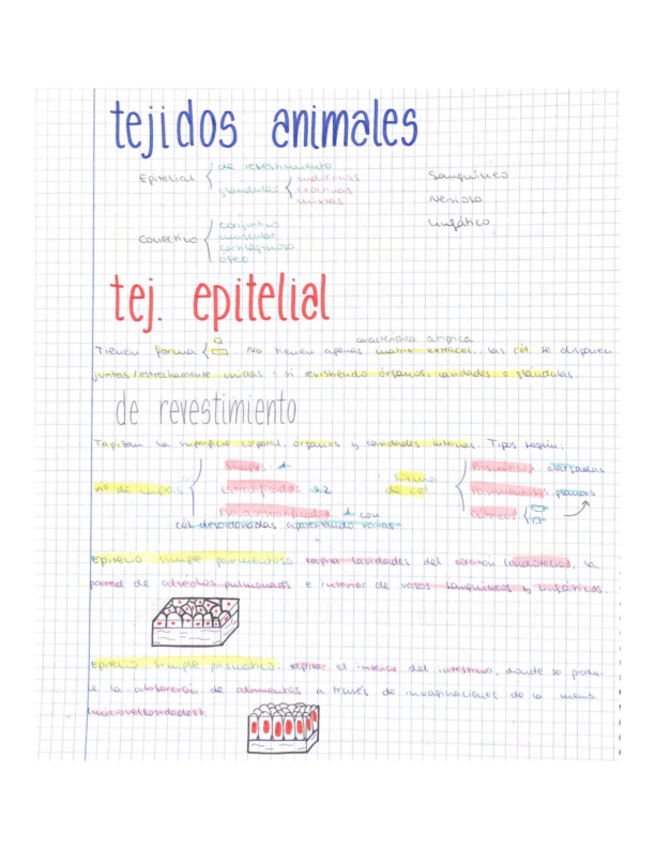 tejidos animales
Epitelial { de revestimiento
glandular { endocrinas
exocrinas
mixtas
Sanguíneo
Nervioso
Linfático
Conectivo { conjuntivo
muscular
cartilaginoso
óseo
tej. epitelial
característica atípica
Tienen forma { No tienen apenas matriz extracel. Las cél. se disponen
juntas/estrechamente unidas + si revistiendo órganos, cavidades o glándulas.
de revestimiento
Tapizan la superficie corporal, órganos y cavidades internas. Tipos según:
nº de capas { simples 1
estratificados ≥2
Pseudoestratificados 1 con
cél desordenadas aparentando varias
forma de cél { Prismáticos alargadas
Pavimentosos planas
cúbicos {
Epitelio simple pavimentoso: tapiza cavidades del corazón (endotelio), la
pared de alveolos pulmonares e interior de vasos sanguíneos y linfáticos.
Epitelio simple prismático: tapiza el interior del intestino, donde se produ-
ce la absorción de alimentos a través de invaginaciones de la memb.
(microvellosidades).